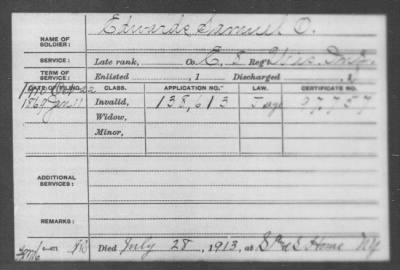 NAME OF SOLDIER: Edwards Samuel O.
SERVICE: Late rank, Co. E, 5 Reg't Wis. Inf.
TERM OF SERVICE: Enlisted , 1 Discharged , 1
DATE OF FILING. CLASS. APPLICATION NO. LAW. CERTIFICATE NO.
1867 Invalid, 138,613 97,757
Widow,
Minor,
ADDITIONAL SERVICES:
REMARKS:
Died July 28, 1913, at S & S Home NY